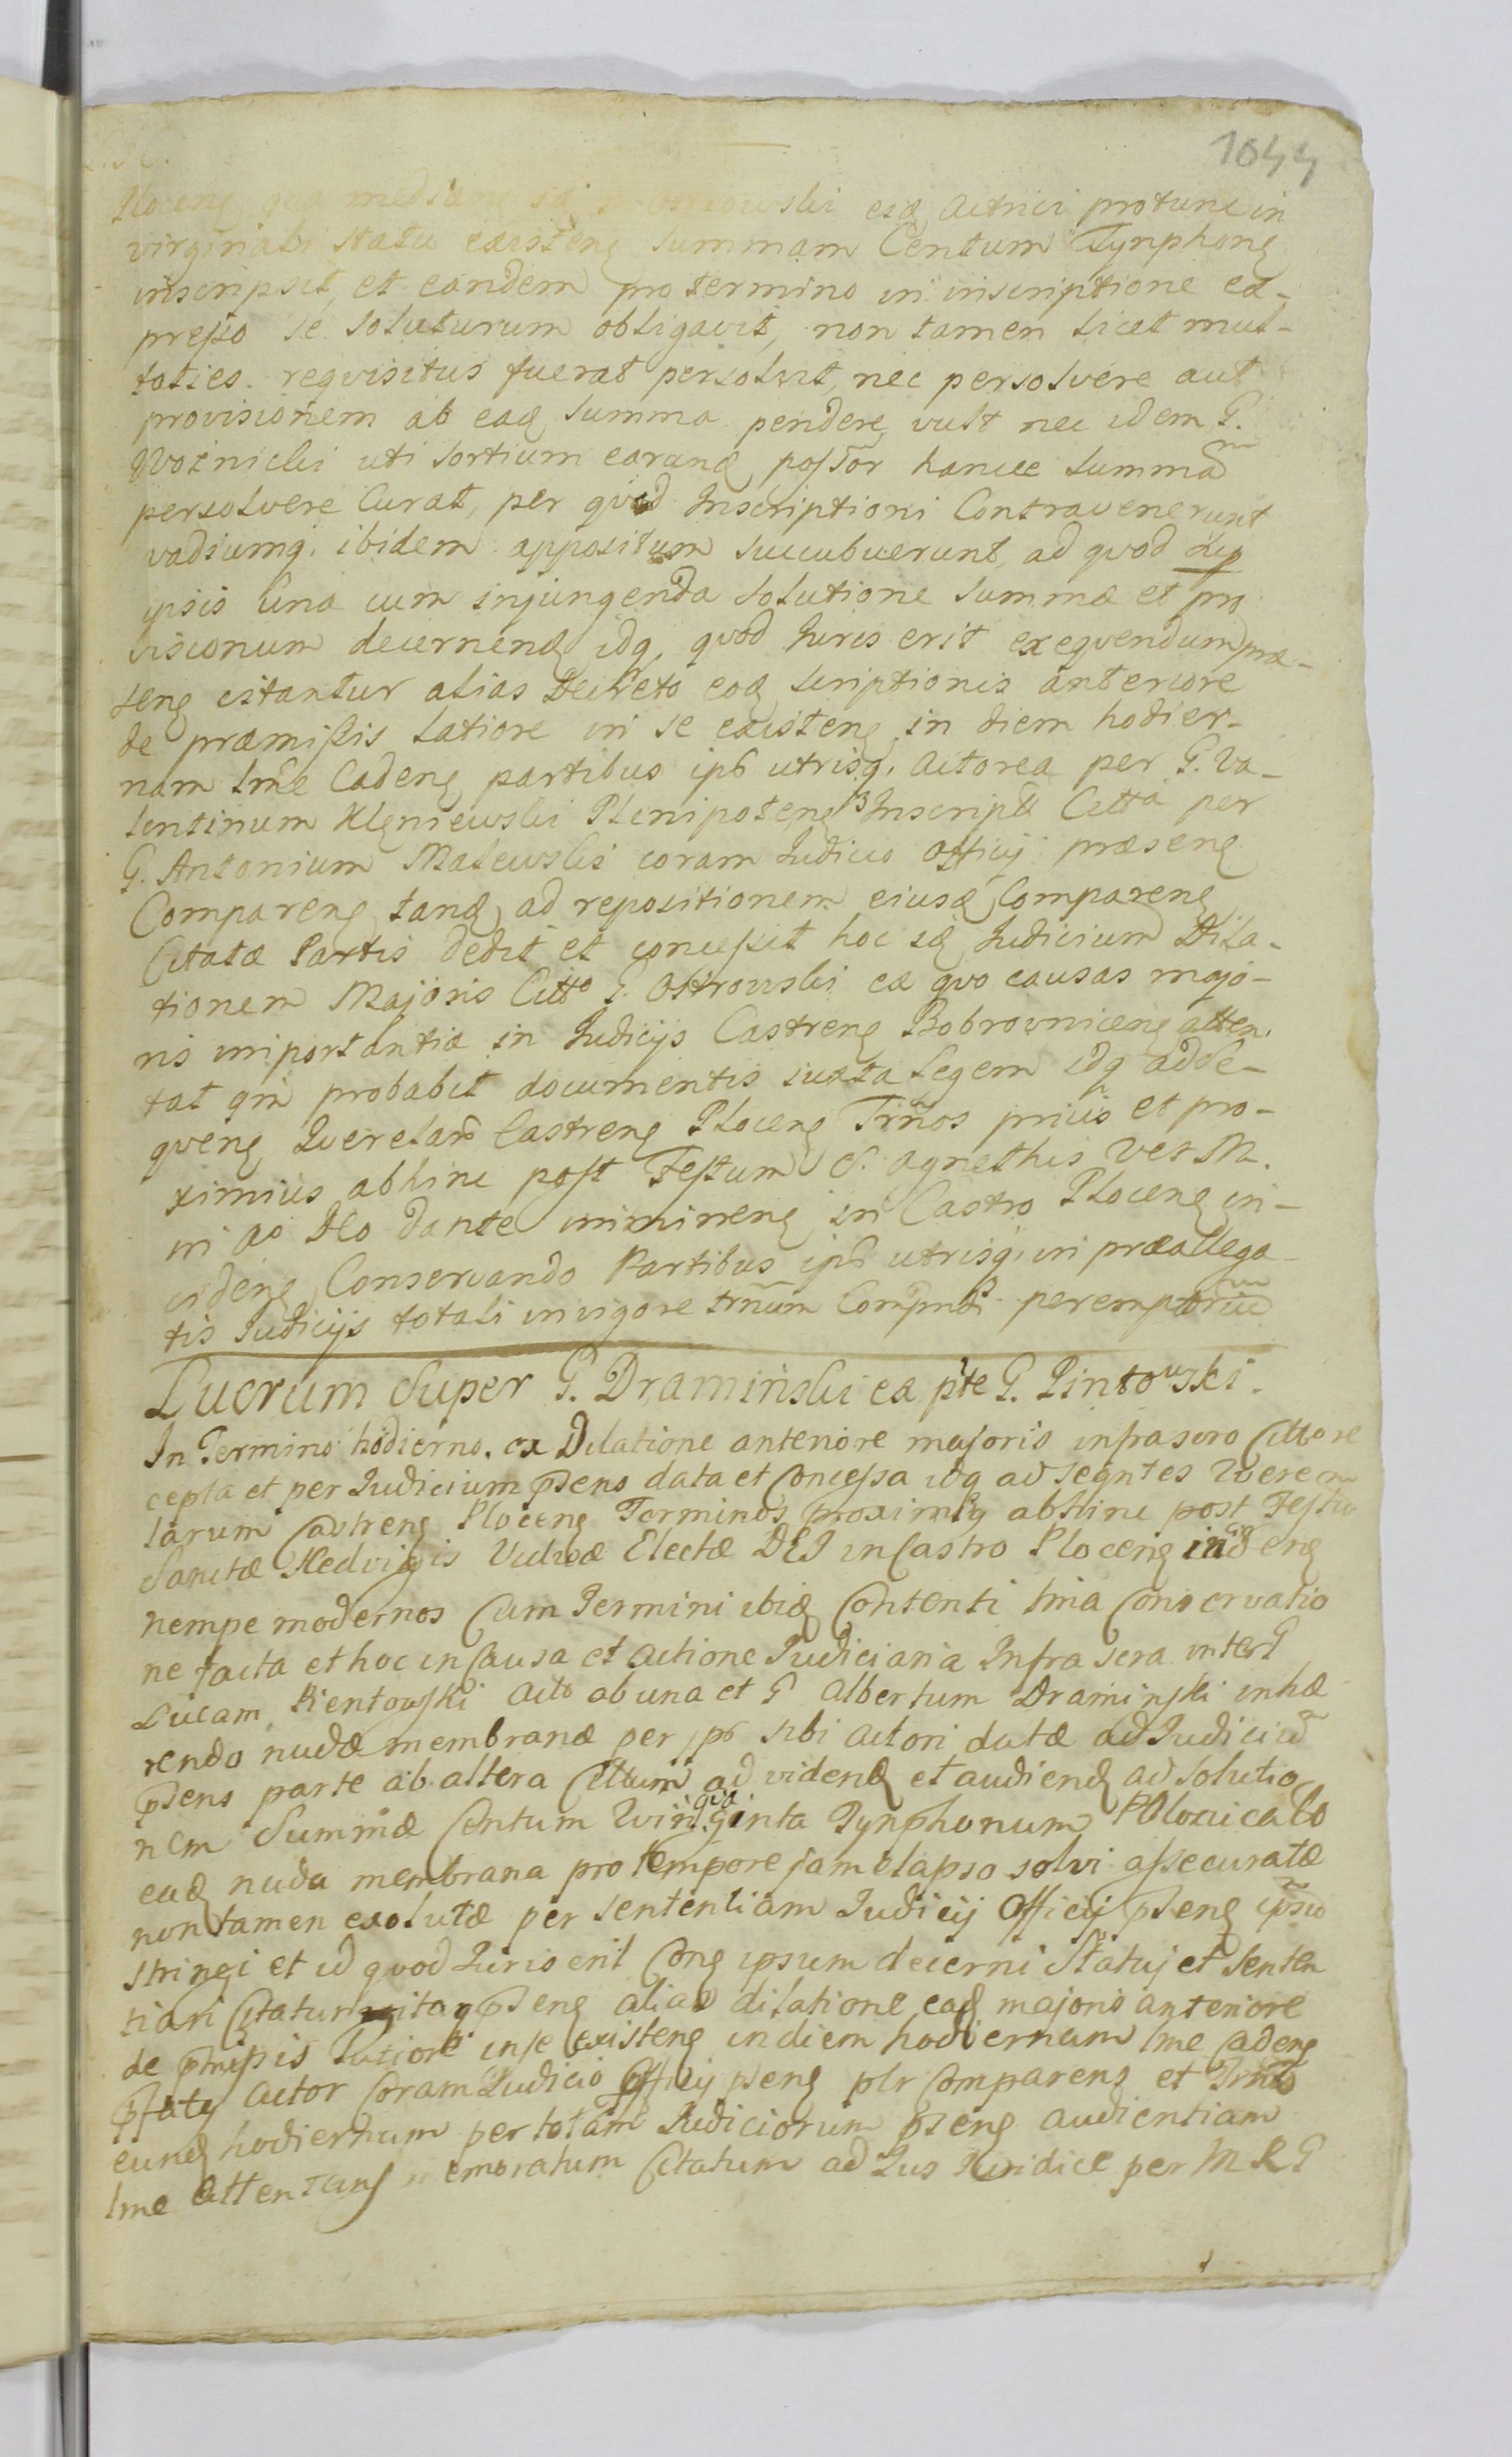 1044
eidem Actrici protunc in
virginali statu existeng summam Centum Tynphong
inscripsit, et eandem pro termino in inscriptione ex-
presso se soluturum obligavit, non tamen licet mul-
toties requisitus fuerat persolvit, nec persolvere aut
provisionem ab eadg summa pendere vult nec idem G.
WozNicki uti sortium earundg possor hancce summam
persolvere Curat, per quod Inscriptioni Contravenerunt
vadiumq. ibidem appositum succubuerunt, ad quod
ipsis una cum injungenda solutione summæ et pro
visionum decernendg idq. quod Iuris erit exequendum præ-
seng citantur alias Decreto eodg scriptionis anteriore
de præmissis latiore in se existeng in diem hodier-
nam lme Cadeng partibus ipb utrisq. Actorea per G. Va-
lentinum Kleniewski Plenipoteng Inscript Citta per
G. Antonium Malewski coram Iudicio Officij præseng
Compareng tandg ad repositionem eiusdg Compareng
Citatæ Partis dedit et concessit hoc idg Iudicium Dila-
tionem Majoris Citto G. Ostrowski ex quo causas majo-
ris importantiæ in Iudicijs Castreng Bobrovniceng atten-
tat qm probabit documentis iuxta Legem idq ad se-
queng Querelard Castreng Ploceng Trños prius et pro-
ximius abhinc post Festum S. Agnethis V et M.
in ao Dło dante immineng in Castro Ploceng in-
cideng Conservando Partibus ipb utrisq. in præallega-
tis Iudicijs totali in vigore trñum Compndi peremptorium
Lucrum super G. Dramiński ex pte G. Pintowski.
In Termino hodierno. ex Dilatione anteriore majoris infrascro Cittore
cepta et per Iudicium pseng data et Concessa idq ad seqntes Quere
larum Castreng Ploceng Terminos proximig abhinc post Festum
Sanctæ Hedvigis Viduæ Electæ DEI in Castro Ploceng incideng
nempe modernos Cum Termini ibidg Contenti lma Conservatio
ne facta et hoc in Causa et Actione Iudiciaria Infrascra inter G
Lucam Pientowski Acto ab una et G Albertum Draminski inhæ
rendo nudæ membranæ per ipb sibi Actori datæ ad Iudiciū
pseng parte ab altera Cittum ad videndg et audiendg ad solutio
nem Summæ Centum Quinquaginta Tynphonum
eadg nuda membrana pro tempore jam elapso solvi assecuratæ
non tamen exolutæ per sententiam Iudicij Officij pseng ipsū
stringi et id quod Iuris erit Cong ipsum decerni Statuj et Senten
tiari Citatur itaq pseng alias dilatione eadg majoris anteriore
de pmissis Lutiore in se existeng in diem hodiernum lme Cadeng
pfatg Actor Coram Iudicio Officij pseng plr Comparens et Trño
eundg hodiernum per totam Iudiciorum pseng audientiam
lme Attentans memoratum Citatum ad Ius Iuridice per M R G